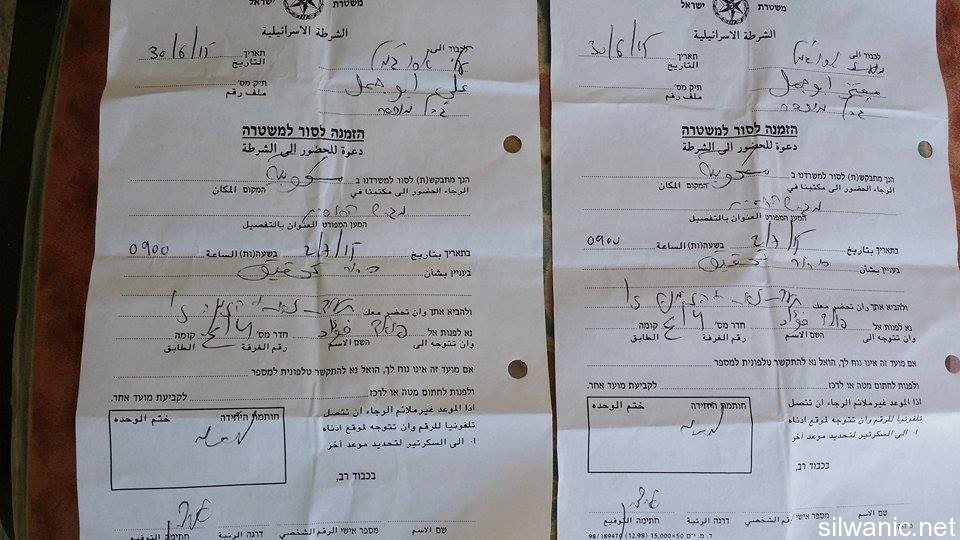 משטרת ישראל
الشرطة الاسرائيلية
לכבוד אל
תאריך 30/6/15
التاريخ
علي ابو جمل
תיק מס'
ملف رقم
הזמנה לסור למשטרה
دعوة للحضور الى الشرطة
הנך מתבקש(ת) לסור למשרדנו ב مسكوبية
الرجاء الحضور الى مكتبنا في המקום المكان
המען המפורט العنوان بالتفصيل
בתאריך بتاريخ 2/7/15 בשעה(ות) الساعة 0900
בעניין بشأن تحقيق
ולהביא אתך وان تحضر معك
נא לפנות אל فؤاد חדר מס' 4 קומה
وان تتوجه الى השם الاسم رقم الغرفة الطابق
אם מועד זה אינו נוח לך, הואל נא להתקשר טלפונית למספר
ולפנות לחתום מטה או לרכז לקביעת מועד אחר.
اذا الموعد غير ملائم الرجاء ان تتصل
تلفونيا للرقم وان تتوجه لموقع ادناه
الى السكرتير لتحديد موعد آخر
חותמת היחידה ختم الوحده
בכבוד רב,
שם الاسم מספר אישי الرقم الشخصي דרגה الرتبة חתימה التوقيع
משטרת ישראל
الشرطة الاسرائيلية
לכבוד אל
תאריך 30/6/15
التاريخ
ابو جمل
תיק מס'
ملف رقم
הזמנה לסור למשטרה
دعوة للحضور الى الشرطة
הנך מתבקש(ת) לסור למשרדנו ב مسكوبية
الرجاء الحضور الى مكتبنا في המקום المكان
המען המפורט العنوان بالتفصيل
בתאריך بتاريخ 2/7/15 בשעה(ות) الساعة 0900
בעניין بشأن تحقيق
ולהביא אתך وان تحضر معك
נא לפנות אל فؤاد חדר מס' 4 קומה
وان تتوجه الى השם الاسم رقم الغرفة الطابق
אם מועד זה אינו נוח לך, הואל נא להתקשר טלפונית למספר
ולפנות לחתום מטה או לרכז לקביעת מועד אחר.
اذا الموعد غير ملائم الرجاء ان تتصل
تلفونيا للرقم وان تتوجه لموقع ادناه
الى السكرتير لتحديد موعد آخر
חותמת היחידה ختم الوحده
בכבוד רב,
שם الاسم מספר אישי الرقم الشخصي דרגה الرتبة חתימה التوقيع
ד. מ. י"ם 15,000×50 (12.98) 98/189470
silwanic.net